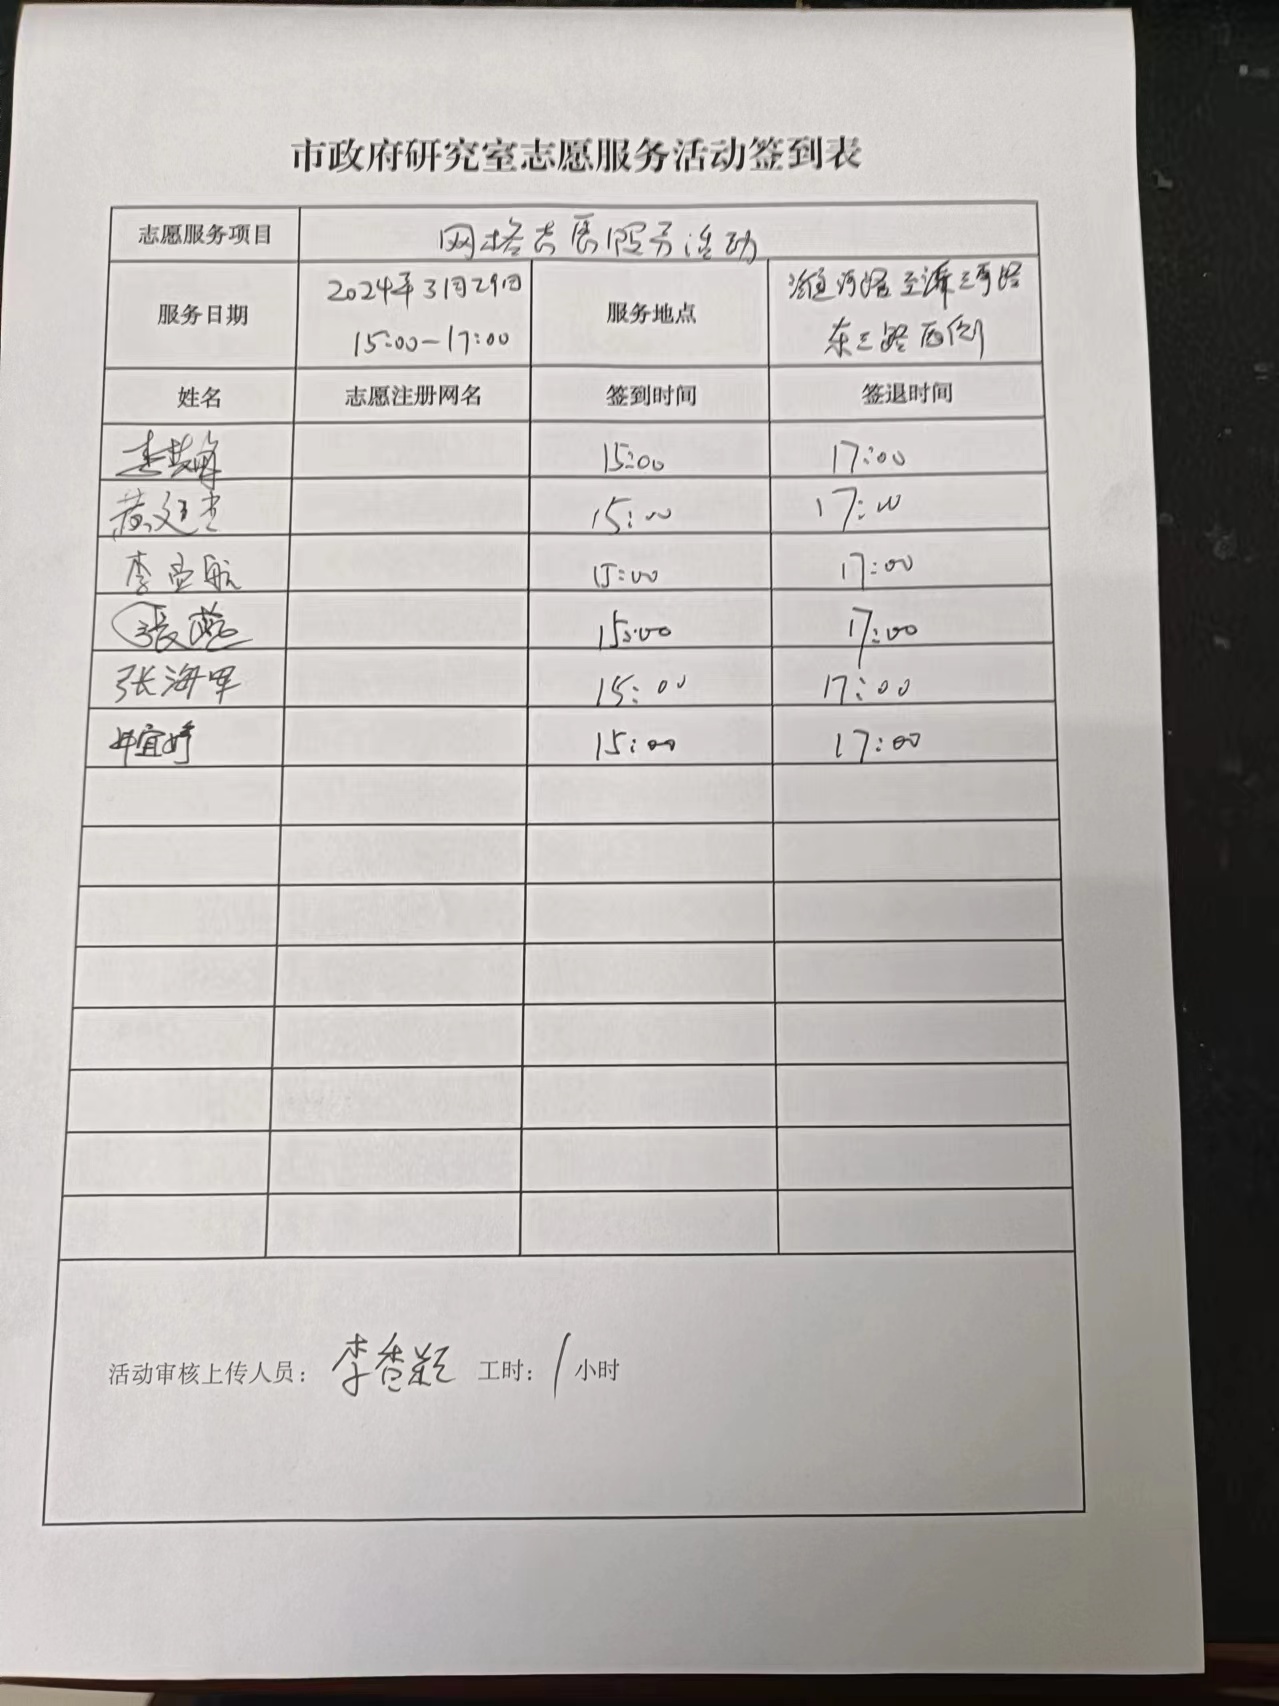 市政府研究室志愿服务活动签到表
志愿服务项目 网格志愿服务活动
服务日期 2024年3月29日 15:00-17:00 服务地点 路至 路 东三路西侧
姓名 志愿注册网名 签到时间 签退时间
15:00 17:00
15:00 17:00
李 航 15:00 17:00
張燕 15:00 17:00
张海军 15:00 17:00
宜婷 15:00 17:00
活动审核上传人员： 李香颖 工时： 1 小时